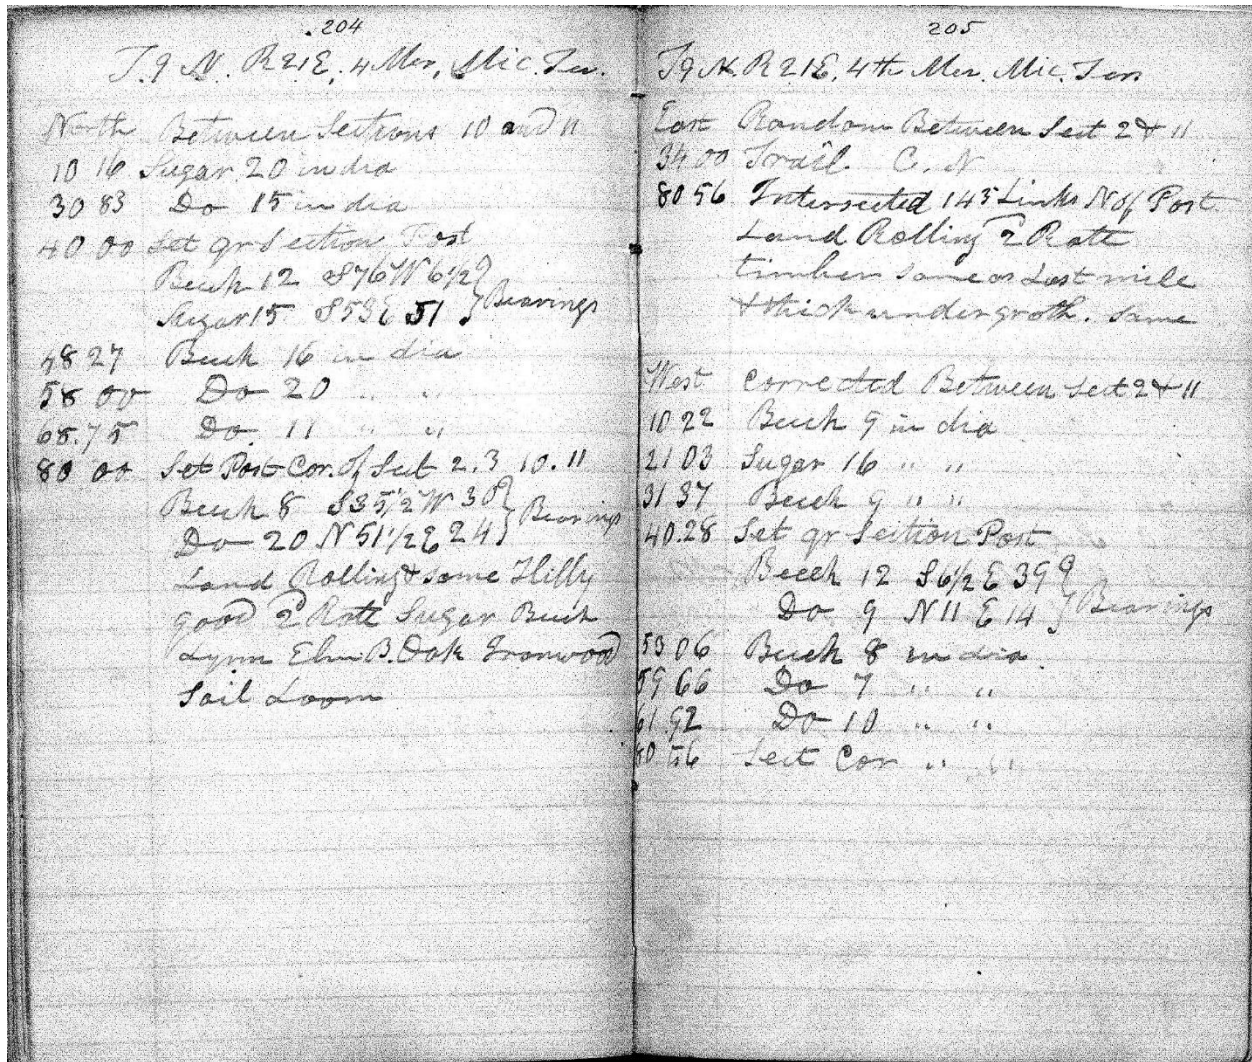 204
T. 9 N. R 21 E. 4 Mer, Mic. Ter.
North Between Sections 10 and 11
10 16 Sugar 20 in dia
30 83 Do 15 in dia
40 00 Set qr Section Post
Beech 12 S76W 6½ } Bearings
Sugar 15 S53E 51
48 27 Beech 16 in dia
58 00 Do 20 " "
68.75 Do. 11 " "
80 00 Set Post Cor. of Sect 2. 3 10. 11
Beech 8 S35½W 30 } Bearings
Do 20 N51½E 24
Land Rolling & some Hilly
good 2 Rate Sugar Beech
Lynn Elm B. Oak Ironwood
Soil Loom
205
T 9 N. R 21 E. 4th Mer. Mic. Terr
East Random Between Sect 2 & 11
34 00 Trail C. N
80 56 Intersected 145 Links N of Post
Land Rolling 2 Rate
timber same as Last mile
& thick undergroth. Same
West Corrected Between Sect 2 & 11
10 22 Beech 9 in dia
21 03 Sugar 16 " "
31 37 Beech 9 " "
40.28 Set qr Section Post
Beech 12 S6½E 39 } Bearings
Do 9 N11E 14
53 06 Beech 8 in dia.
59 66 Do 7 " "
61.92 Do 10 " "
80 56 Sect Cor " "